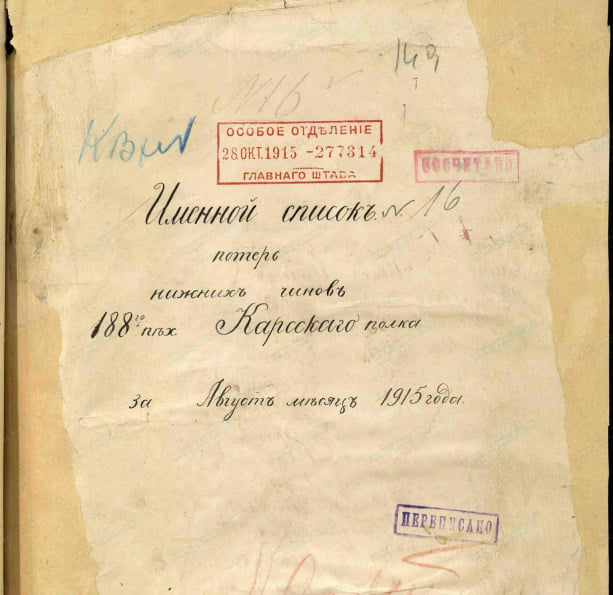 149
№ 16
ОСОБОЕ ОТДѢЛЕНІЕ
28 ОКТ. 1915 -277314
ГЛАВНАГО ШТАБА
СОСЧИТАНО
Именной списокъ № 16
потерь
нижнихъ чиновъ
188го пѣх. Карсскаго полка
за Августъ мѣсяцъ 1915 года.
ПЕРЕПИСАНО